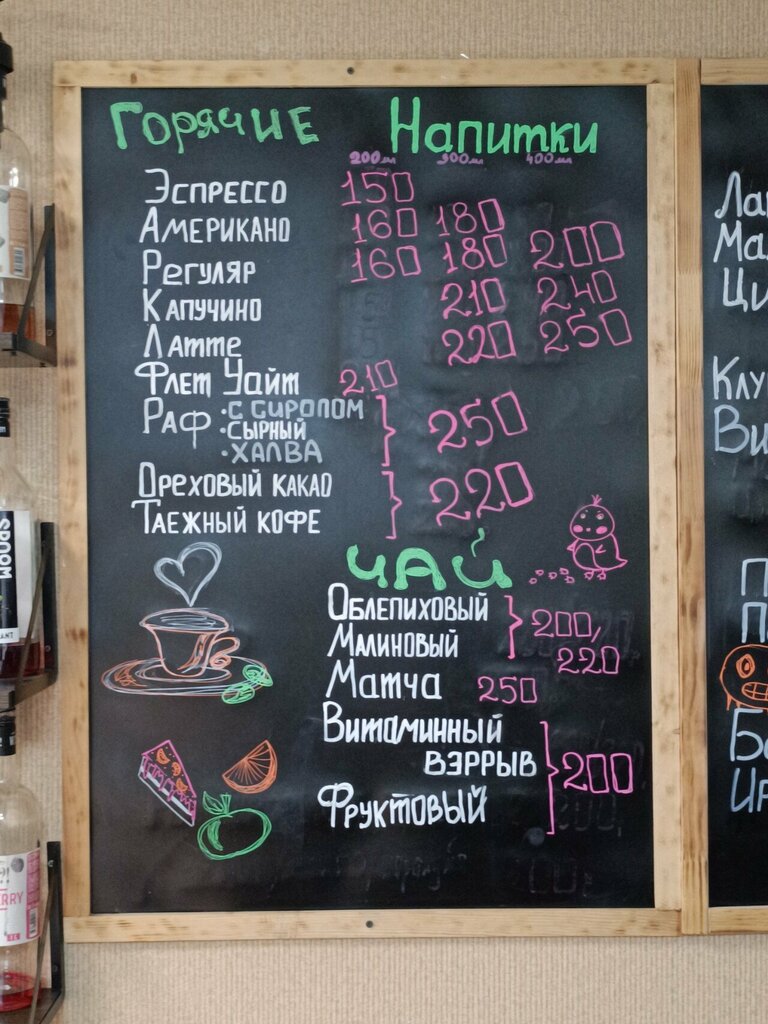 Горячие Напитки
200мл 300мл 400мл
Эспрессо 150
Американо 160 180
Регуляр 160 180 200
Капучино 210 240
Латте 220 250
Флет Уайт 210
Раф • с сиропом
• сырный 250
• халва
Ореховый какао
Таежный кофе 220
Чай
Облепиховый 200,
Малиновый 220
Матча 250
Витаминный
вэррыв 200
Фруктовый
Ла
Ма
Ци
Клу
Ви
П
П
Ба
Ир
SPOOM
RRY